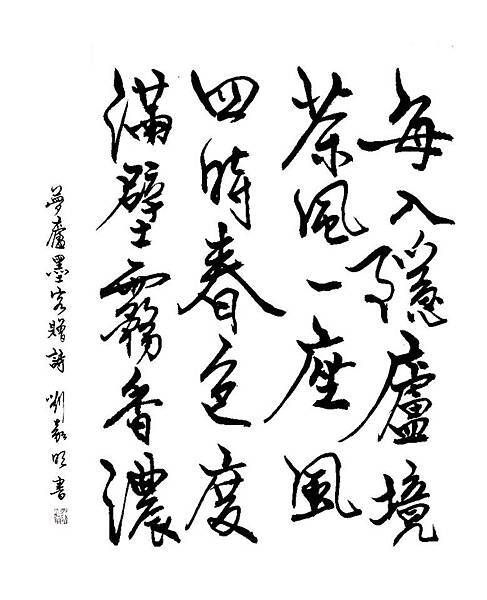 每入隱廬境
茶風一座風
四時春色度
滿壁霧香濃
夢廬墨客贈詩 劉嘉明書